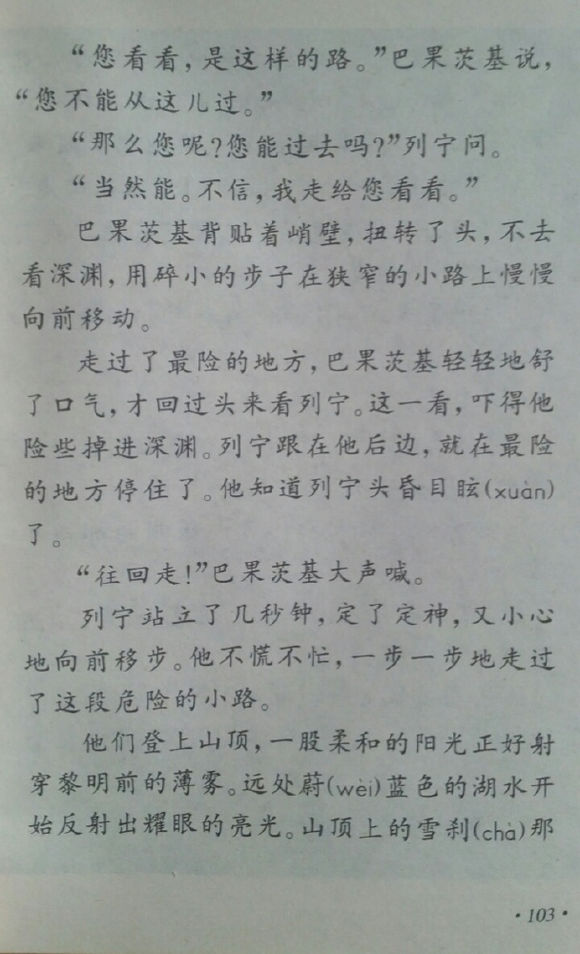 “您看看，是这样的路。”巴果茨基说，
“您不能从这儿过。”
“那么您呢？您能过去吗？”列宁问。
“当然能。不信，我走给您看看。”
巴果茨基背贴着峭壁，扭转了头，不去
看深渊，用碎小的步子在狭窄的小路上慢慢
向前移动。
走过了最险的地方，巴果茨基轻轻地舒
了口气，才回过头来看列宁。这一看，吓得他
险些掉进深渊。列宁跟在他后边，就在最险
的地方停住了。他知道列宁头昏目眩(xuàn)
了。
“往回走！”巴果茨基大声喊。
列宁站立了几秒钟，定了定神，又小心
地向前移步。他不慌不忙，一步一步地走过
了这段危险的小路。
他们登上山顶，一股柔和的阳光正好射
穿黎明前的薄雾。远处蔚(wèi)蓝色的湖水开
始反射出耀眼的亮光。山顶上的雪刹(chà)那
·103·